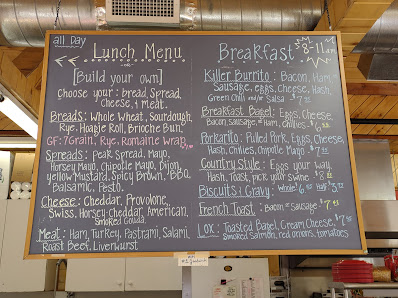 all Day
Lunch Menu
[Build your own]
Choose your: bread, Spread,
cheese, & meat.
Breads: Whole Wheat, Sourdough,
Rye, Hoagie Roll, Brioche Bun,
GF: 7Grain, Rye, Romaine Wrap,
Spreads: Peak Spread, Mayo,
Horsey Mayo, Chipotle Mayo, Dijon,
Yellow Mustard, Spicy Brown, BBQ,
Balsamic, Pesto.
Cheese: Cheddar, Provolone,
Swiss, Horsey-Cheddar, American,
Smoked Gouda.
Meat: Ham, Turkey, Pastrami, Salami,
Roast Beef, Liverwurst
Breakfast
8-11am
Killer Burrito: Bacon, Ham,
Sausage, Eggs, Cheese, Hash,
Green Chili and/or Salsa
Breakfast Bagel: Eggs, Cheese,
Bacon, sausage, or ham, Chilies
Porkarito: Pulled Pork, Eggs, Cheese,
Hash, Chilies, Chipotle Mayo
Country Style: Eggs your way,
Hash, Toast, pick your swine
Biscuits & Gravy: Whole Half
French Toast: Bacon or Sausage
LOX: Toasted Bagel, Cream Cheese,
Smoked Salmon, red onions, tomatoes